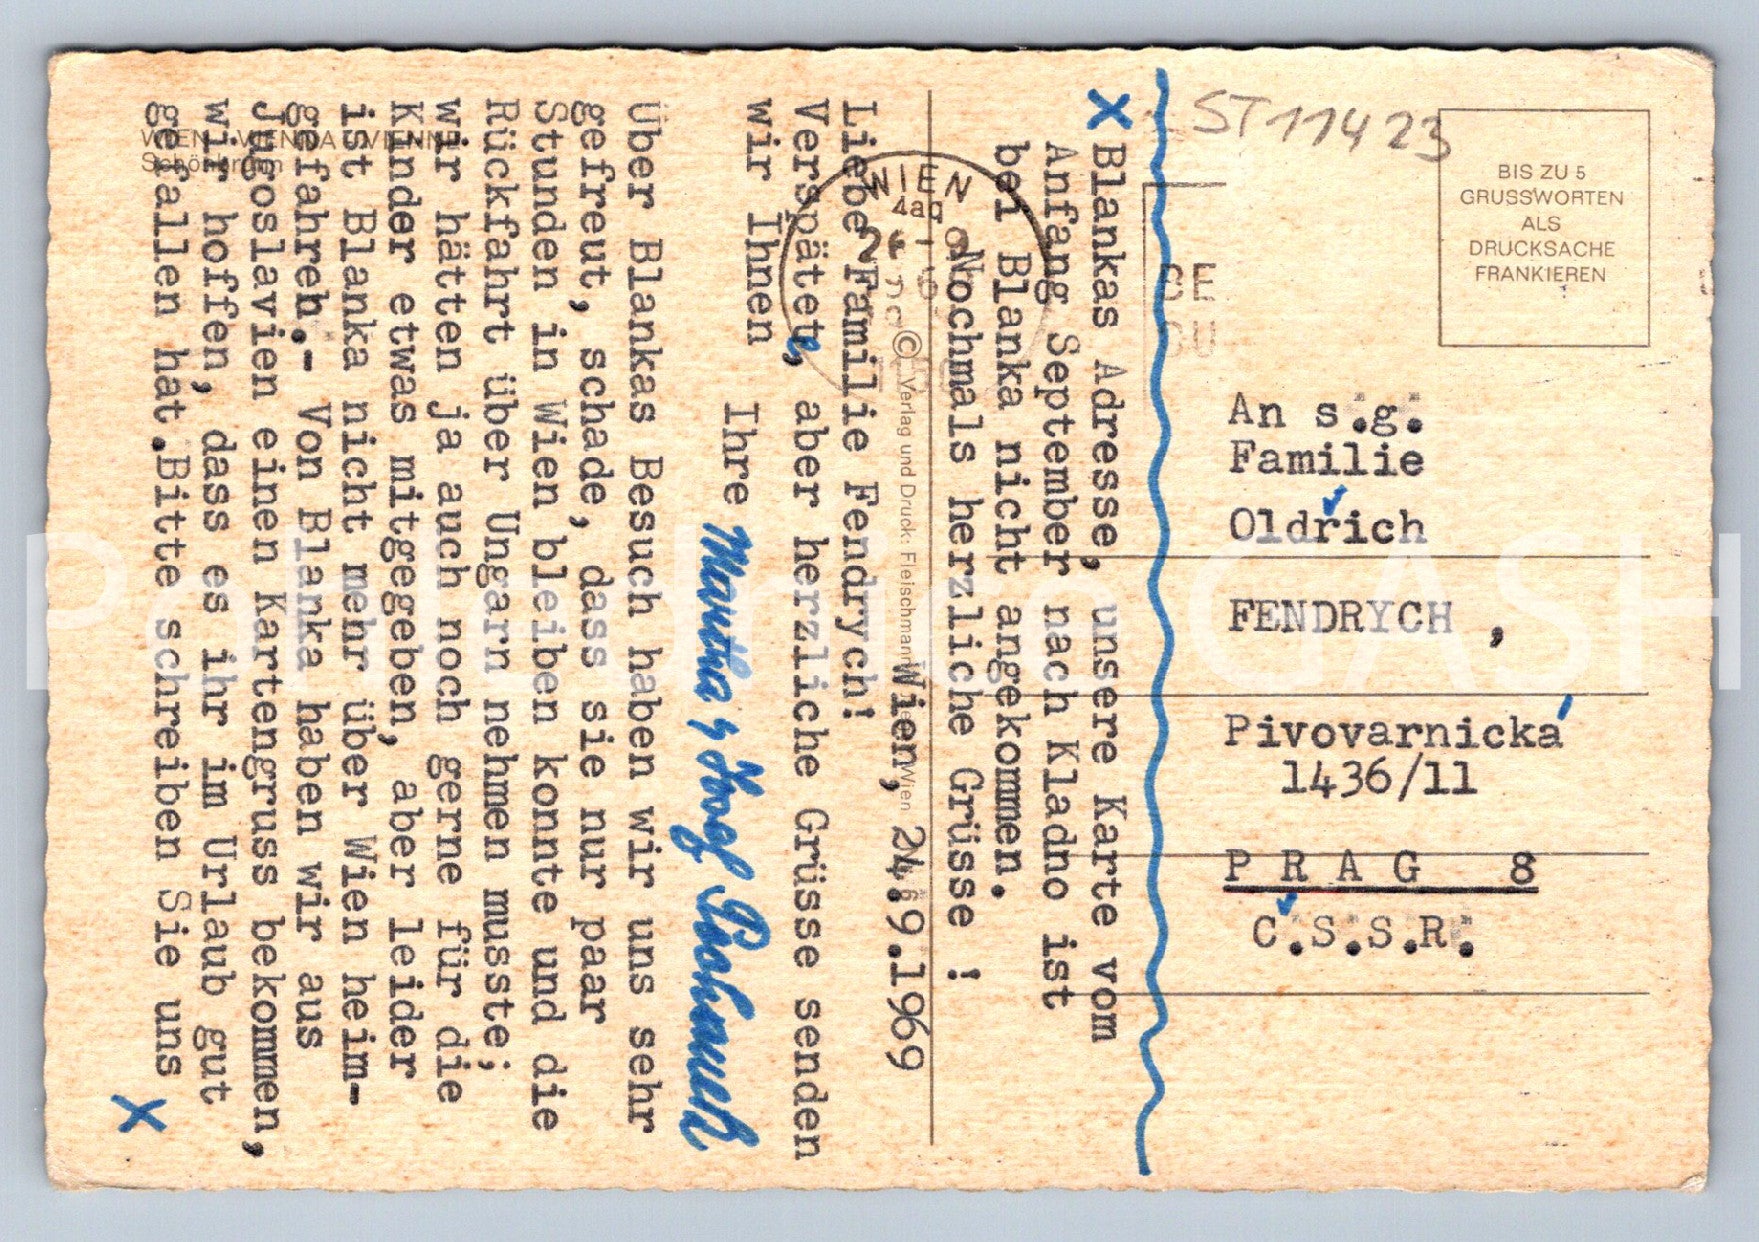 ST 11423
BIS ZU 5
GRUSSWORTEN
ALS
DRUCKSACHE
FRANKIEREN
WIEN
An s.g.
Familie
Oldřich
FENDRYCH ,
Pivovarnická
1436/11
P R A G 8
Č.S.S.R.
WIEN VIENNA VIENNE
Schönbrunn
© Verlag und Druck: Fleischmann Wien
Wien, 24.9.1969
Liebe Familie Fendrych!
Verspätete, aber herzliche Grüsse senden
wir Ihnen
Ihre Martha & Josef
Über Blankas Besuch haben wir uns sehr
gefreut, schade, dass sie nur paar
Stunden in Wien bleiben konnte und die
Rückfahrt über Ungarn nehmen musste;
wir hätten ja auch noch gerne für die
Kinder etwas mitgegeben, aber leider
ist Blanka nicht mehr über Wien heim-
gefahren.- Von Blanka haben wir aus
Jugoslavien einen Kartengruss bekommen,
wir hoffen, dass es ihr im Urlaub gut
gefallen hat.Bitte schreiben Sie uns
X
X Blankas Adresse, unsere Karte vom
Anfang September nach Kladno ist
bei Blanka nicht angekommen.
Nochmals herzliche Grüsse !